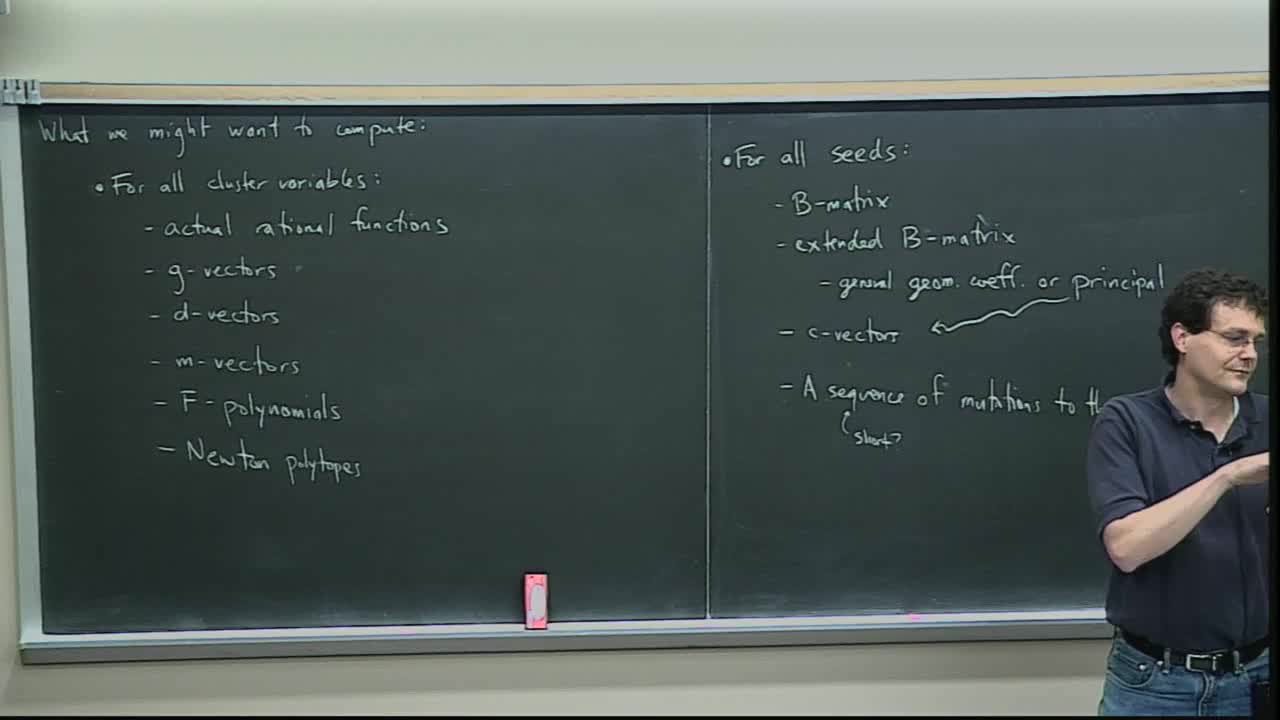 What we might want to compute:
• For all cluster variables:
- actual rational functions
- g-vectors
- d-vectors
- m-vectors
- F-polynomials
- Newton polytopes
• For all seeds:
- B-matrix
- extended B-matrix
- general geom. coeff. or principal
- c-vectors
- A sequence of mutations to th
short?